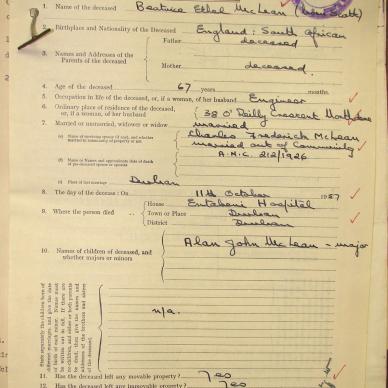 1. Name of the deceased Beatrice Ethel McLean (born Scott)
2. Birthplace and Nationality of the Deceased England: South African
3. Names and Addresses of the Parents of the deceased
Father deceased
Mother deceased.
4. Age of the deceased 67 years months.
5. Occupation in life of the deceased, or, if a woman, of her husband Engineer
6. Ordinary place of residence of the deceased, or, if a woman, of her husband 38 O'Reilly Crescent
7. Married or unmarried, widower or widow married
(a) Name of surviving spouse (if any), and whether married in community of property or not
Charles Frederick McLean
married out of Community
A.N.C. 2/2/1926
(b) Name or Names and approximate date of death of pre-deceased spouse or spouses
(c) Place of last marriage Durban
8. The day of the decease: On 11th October 1957
9. Where the person died
House Entabeni Hospital
Town or Place Durban
District Durban
10. Names of children of deceased, and whether majors or minors
Alan John McLean - major
n/a.
11. Has the deceased left any movable property? yes
12. Has the deceased left any immovable property? yes